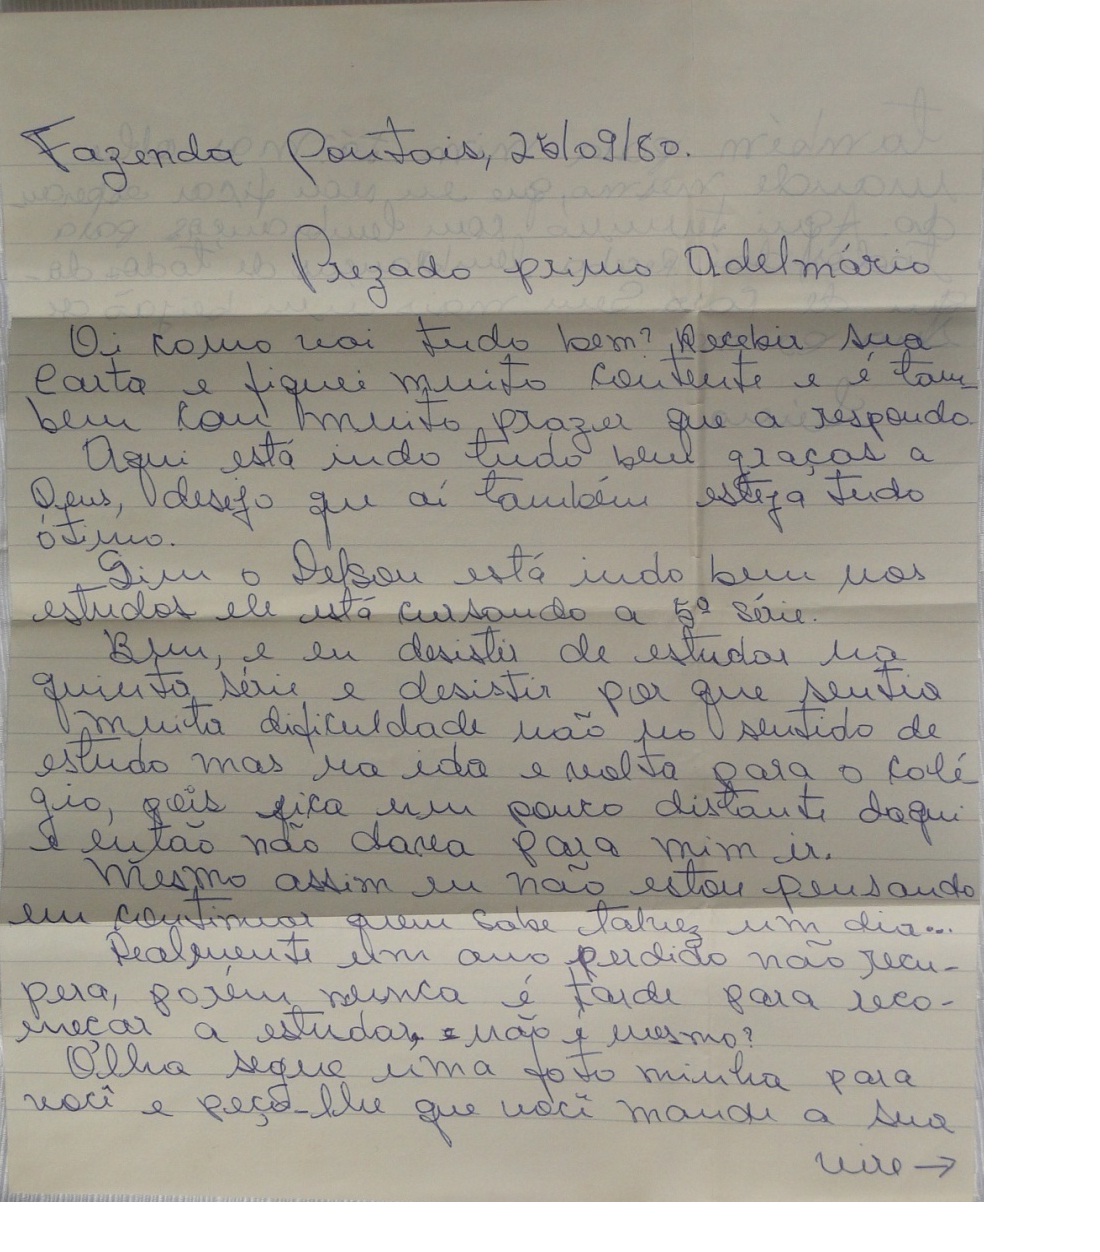 Fazenda Pontais, 28/09/80.
Prezado primo Adelmário
Oi como vai tudo bem? Recebir sua
Carta e fiquei muito contente e é tam_
bem com muito prazer que a respondo.
Aqui está indo tudo bem graças a
Deus, desejo que aí também esteja tudo
ótimo.
Sim o Delson está indo bem nos
estudos ele está cursando a 5ª série.
Bem, e eu desistir de estudar na
quinta série e desistir por que sentia
muita dificuldade não no sentido de
estudo mas na ida e volta para o colé
gio, pois fica um pouco distante daqui
e então não dava para mim ir.
Mesmo assim eu não estou pensando
em continuar quem sabe talvez um dia...
Realmente um ano perdido não recu-
pera, porém nunca é tarde para reco-
meçar a estudar, não é mesmo?
Olha segue uma foto minha para
você e peço-lhe que você mande a sua
vire →